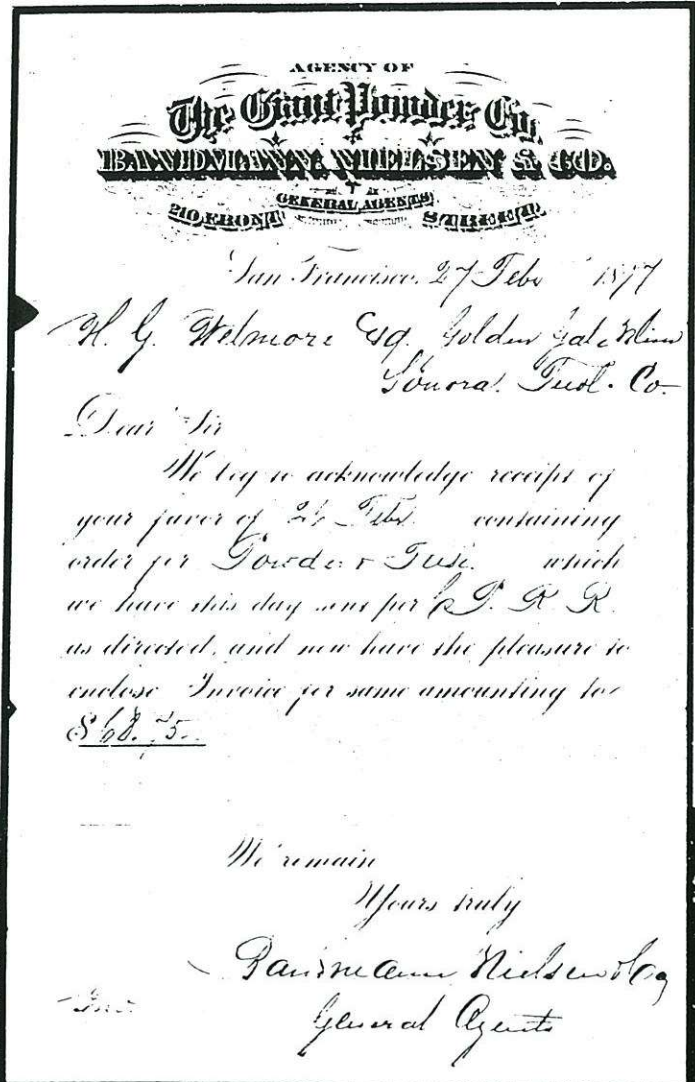 AGENCY OF
The Giant Powder Co.
BANDMANN, NIELSEN & CO.
GENERAL AGENTS
210 FRONT STREET.
San Francisco, 27 Feby 1877
H. G. Wetmore Esq. Golden Gate Mine
Sonora. Tuol. Co.
Dear Sir
We beg to acknowledge receipt of
your favor of 26 Feby. containing
order for Powder & Fuse. which
we have this day sent per C P. R R.
as directed, and now have the pleasure to
enclose Invoice for same amounting to
$ 68.75.
We remain
Yours truly
Bandmann Nielsen & Co
General Agents